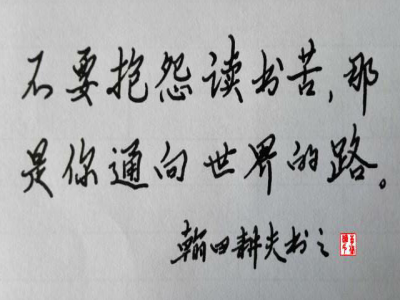 不要抱怨读书苦,那
是你通向世界的路。
翰田耕夫书之